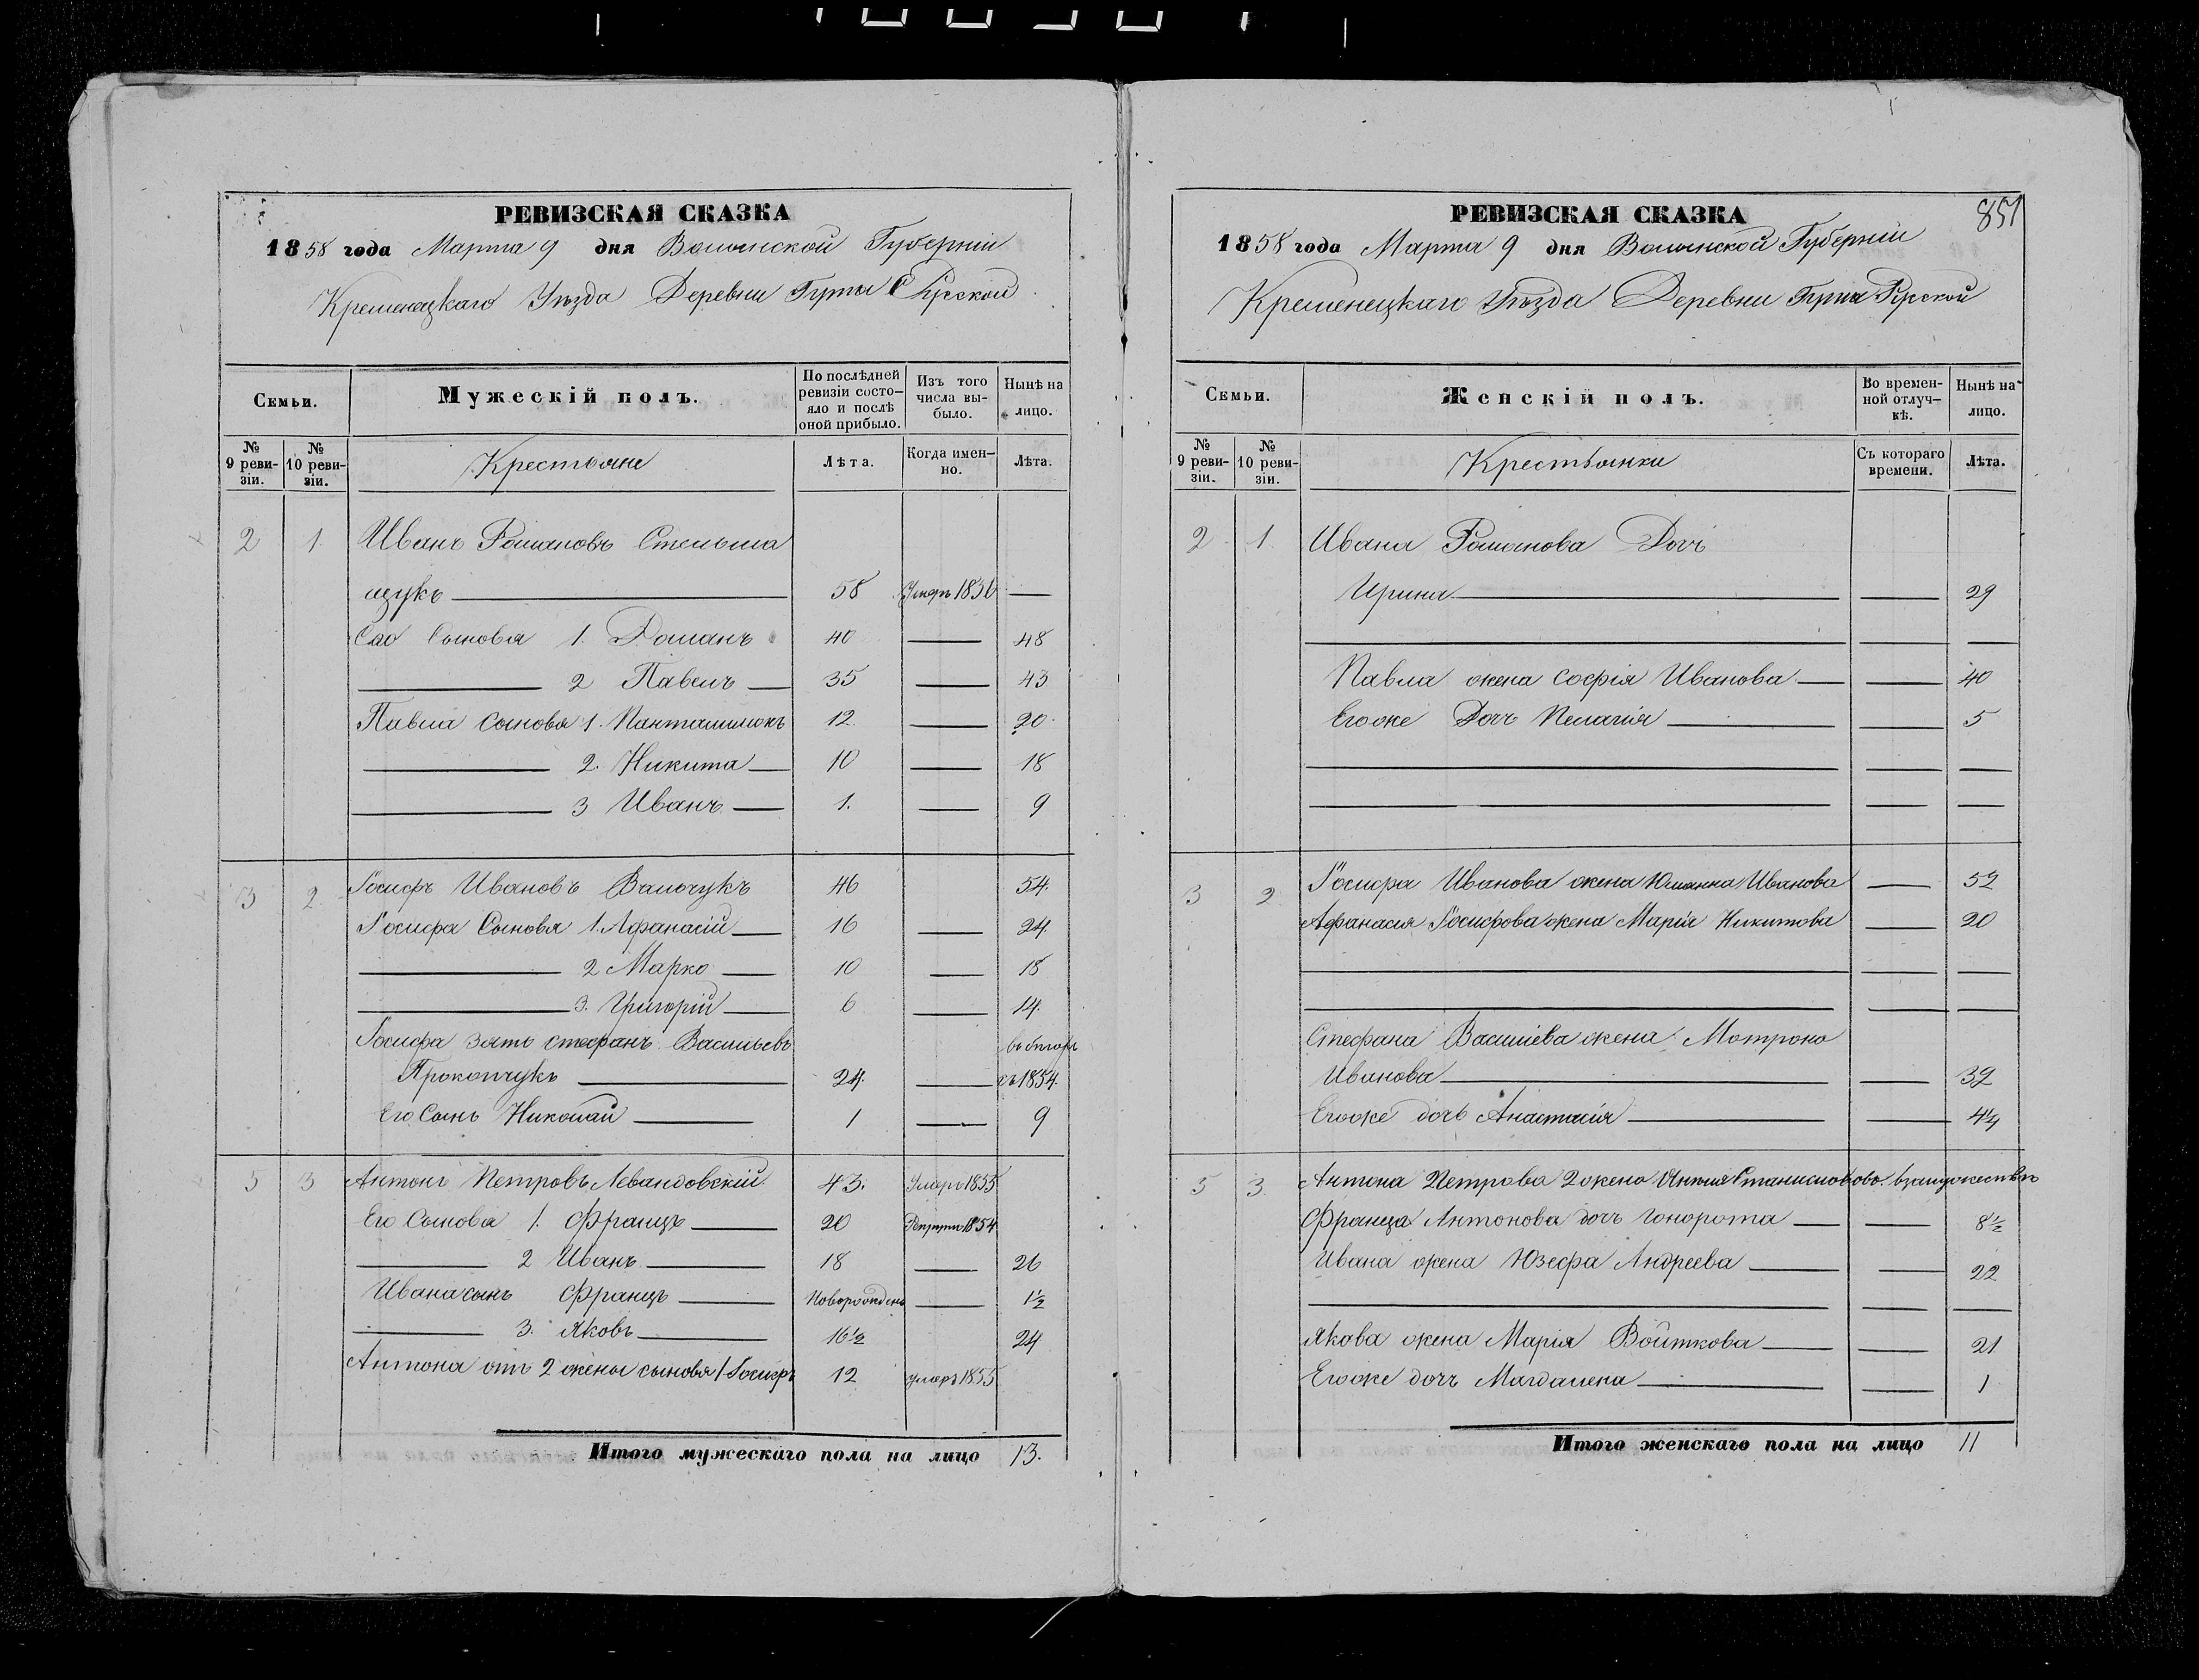 РЕВИЗСКАЯ СКАЗКА
1858 года Марта 9 дня Волынской Губерніи
Кременецкаго Уѣзда Деревни Гурты Русской
Семьи.
Мужескій полъ.
По послѣдней ревизіи состо-яло и послѣ оной прибыло.
Изъ того числа вы-было.
Нынѣ на лицо.
№ 9 реви-зіи.
№ 10 реви-зіи.
Крестьяне
Лѣта.
Когда имен-но.
Лѣта.
2 1. Иванъ Романовъ Стельма
щукъ 58 Умеръ 1856
Сыновья 1. Романъ 40 48
2 Павелъ 35 43
Павла сыновья 1. Пантелимонъ 12 20
2. Никита 10 18
3 Иванъ 1. 9
3 2 Іосифъ Ивановъ Вальчукъ 46 54.
Іосифа Сыновья 1. Афанасій 16 24
2 Марко 10 18
3. Григорій 6 14.
Іосифа зять Стефанъ Васильевъ въ бѣгахъ
Прокопчукъ 24. съ 1854.
Его Сынъ Николай 1 9
5 3 Антонъ Петровъ Левандовскій 43. Умеръ 1855
Его Сыновья 1. Францъ 20 1854
2 Иванъ 18 26
Ивана сынъ Францъ Новорожденъ 1½
3. Яковъ 16½ 24
Антона отъ 2 жены сыновья 1 Іосифъ 12 умеръ 1855
Итого мужескаго пола на лицо 13.
851
РЕВИЗСКАЯ СКАЗКА
1858 года Марта 9 дня Волынской Губерніи
Кременецкаго Уѣзда Деревни Гурты Русской
Семьи.
Женскій полъ.
Во времен-ной отлуч-кѣ.
Нынѣ на лицо.
№ 9 реви-зіи.
№ 10 реви-зіи.
Крестьянки
Съ котораго времени.
Лѣта.
2 1 Ивана Романова Дочь
Ирина 29
Павла жена Софія Иванова 40
Его же Дочь Пелагія 5
3 2 Іосифа Иванова жена Юлианна Иванова 52
Афанасія Іосифова жена Марія Никитова 20
Стефана Василіева жена Мотрона
Иванова 32
Его же дочь Анастасія 4¼
5 3. Антона Петрова 2 жена Станиславова взамужествѣ
Франца Антонова дочь Гонорота 8½
Ивана жена Юзефа Андреева 22
Якова жена Марія Войткова 21
Его же дочь Магдалена 1
Итого женскаго пола на лицо 11